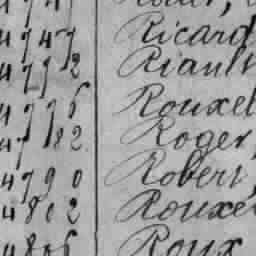 4747 Ricard
4772 Riault
4776 Rouxel
4782 Roger,
4790 Robert,
4802 Rouxel
4806 Roux